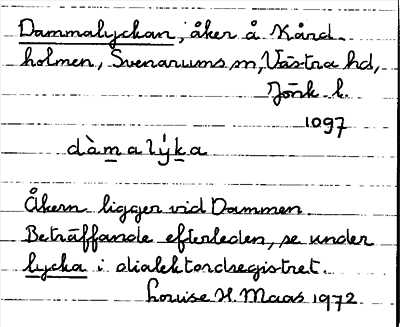 Dammalyckan, åker å Kård-
holmen, Svenarums sn, Västra hd,
Jönk. l.
1097
dàmalýka
Åkern ligger vid Dammen.
Beträffande efterleden, se under
lycka i dialektordsregistret.
Louise H. Maas 1972